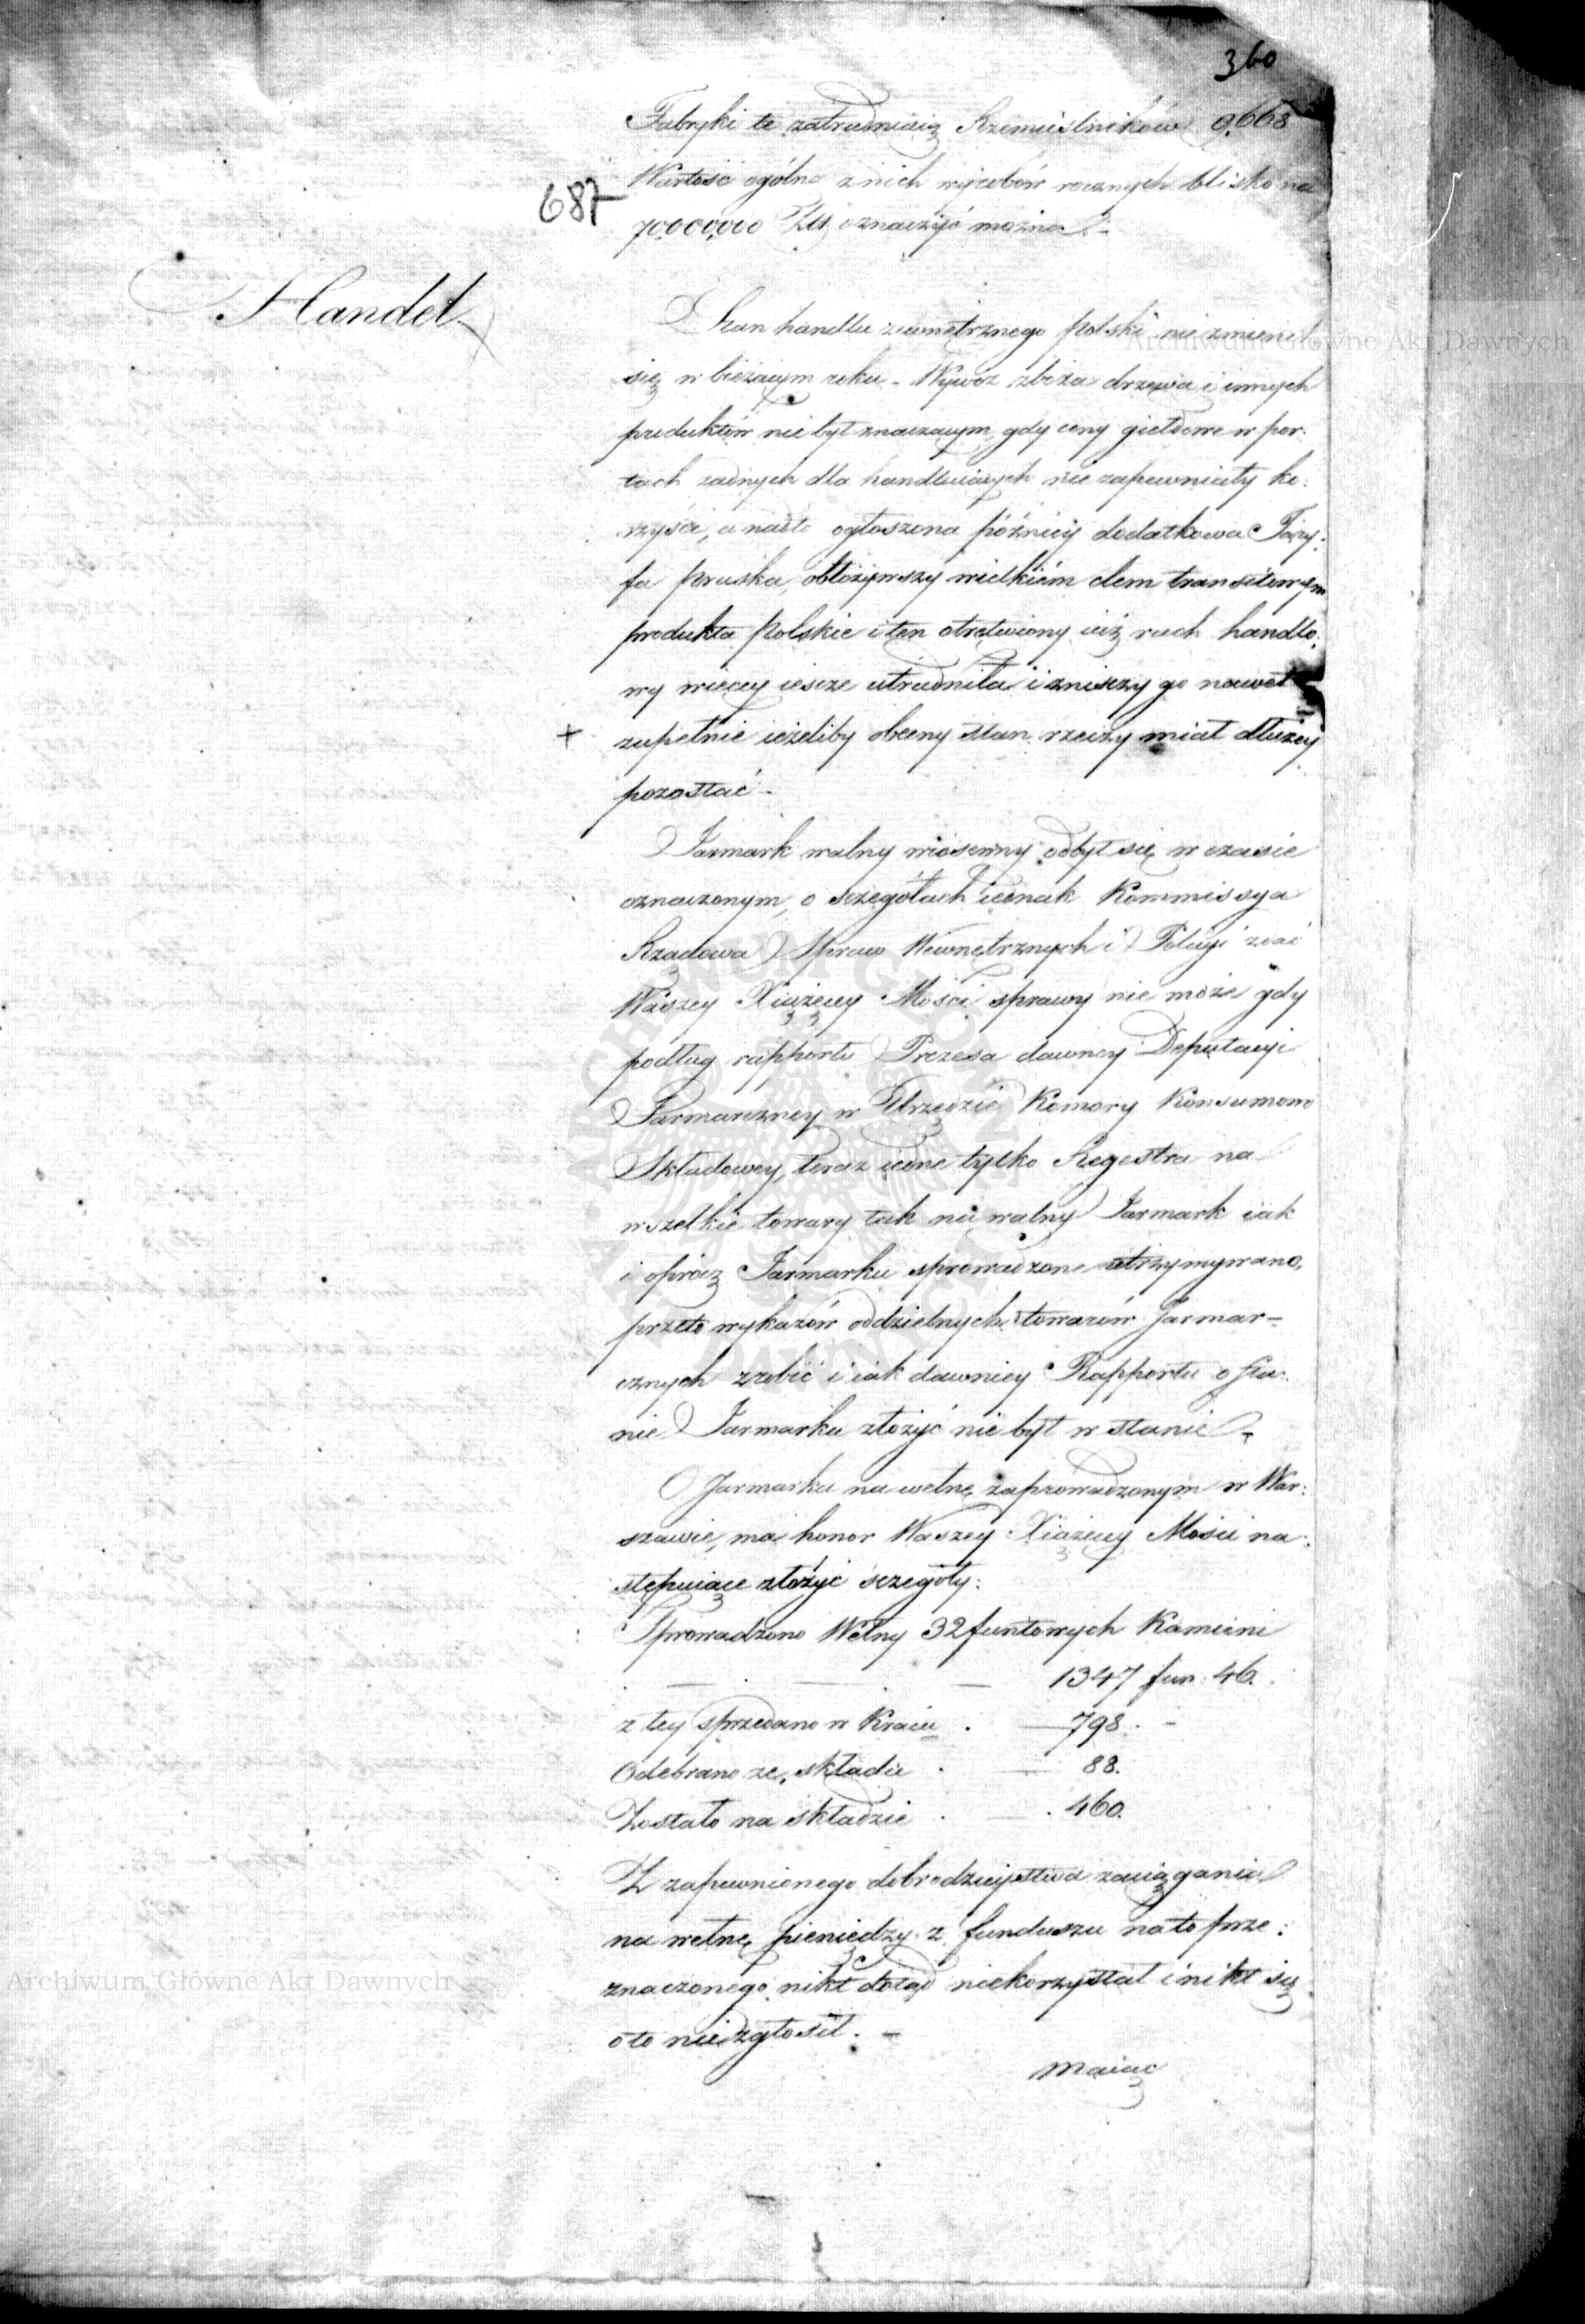 360
Fabryki te zatrudniaią Rzemieślników 9,668
687
Wartość ogólna z nich wyrobów rocznych blisko na
70,000,000 Złł oznaczyć można.-
Handel
Stan handlu zewnętrznego Polski nie zmienił
się w bieżącym roku. - Wywóz zboża drzewa i innych
produktów nie był znacznym, gdy ceny giełdowe w por:
tach żadnych dla handluiących nie zapewniały ko:
rzyści, a nadto ogłoszona późniey dodatkowa Tary:
fa Pruska, obłożywszy wielkiém cłem transitowym
produkta Polskie i ten otrętwiony iuż ruch handlo:
wy więcey iescze utrudniła i zniszczy go nawet
+ zupełnie ieżeliby obecny stan rzeczy miał dłużey
pozostać -
Jarmark walny wiosenny odbył się w czasie
oznaczonym, o sczegółach iednak Kommissya
Rządowa Spraw Wewnętrznych i Policyi zdać
Waszey Xiążęcey Mości sprawy nie może gdy
podług rapportu Prezesa dawney Deputacyi
Jarmarczney w Urzędzie Komory Konsumowo
Składowey, teraz iedne tylko Regestra na
wszelkie towary tak na walny Jarmark iak
i oprócz Jarmarku sprowadzone utrzymywano,
przeto wykazów oddzielnych towarów Jarmar-
cznych zrobić i iak dawniey Rapportu o sta:
nie Jarmarku złożyć nie był w stanie -
O Jarmarku na wełnę zaprowadzonym w War:
szawie, ma honor Waszey Xiążęcey Mości na:
stępuiące złożyć sczegóły:
Sprowadzono Wełny 32 funtowych Kamieni
1347 fun: 46.
z tey sprzedano w Kraiu . — 798. -
Odebrano ze składu . — 88.
Zostało na składzie . — . 460.
Z zapewnionego dobrodzieystwa zaciągania
na wełnę pieniędzy z funduszu na to prze:
znaczonego nikt dotąd niekorzystał i nikt się
o to nie zgłosił. -
Maiąc
Archiwum Główne Akt Dawnych
Archiwum Główne Akt Dawnych